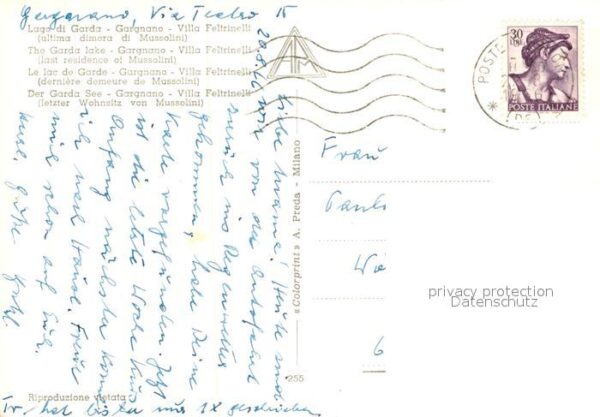 Gargnano, Via Teatro 15
Lago di Garda - Gargnano - Villa Feltrinelli
(ultima dimora di Mussolini)
The Garda lake - Gargnano - Villa Feltrinelli
(last residence of Mussolini)
Le lac de Garde - Gargnano - Villa Feltrinelli
(dernière demeure de Mussolini)
Der Garda See - Gargnano - Villa Feltrinelli
(letzter Wohnsitz von Mussolini)
20.8.
Liebe Mama! Heute sind
wir von der Autofahrt
zurück ins Regenwetter
gekommen, habe Deine
Karte vorgefunden. Jetzt
ist die letzte Woche
Anfang nächster
ich nach Hause. Freue
mich schon auf Euch.
Gretl.
hat bis jetzt nur 1x geschrieben
Riproduzione vietata
255
«Colorprint» A. Preda - Milano
30
POSTE ITALIANE
POSTE
Frau
privacy protection
Datenschutz